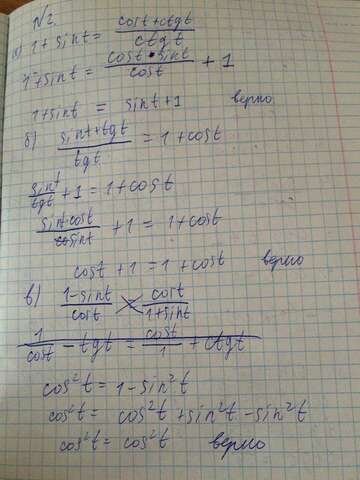 N2
а) 1 + sint = (cost + ctgt)/ctgt
1 + sint = (cost · sint)/cost + 1
1 + sint = sint + 1 верно
б) (sint + tgt)/tgt = 1 + cost
sint/tgt + 1 = 1 + cost
(sint cost)/sint + 1 = 1 + cost
cost + 1 = 1 + cost верно
в) (1 - sint)/cost × cost/(1 + sint)
1/cost - tgt = cost/1 + ctgt
cos²t = 1 - sin²t
cos²t = cos²t + sin²t - sin²t
cos²t = cos²t верно